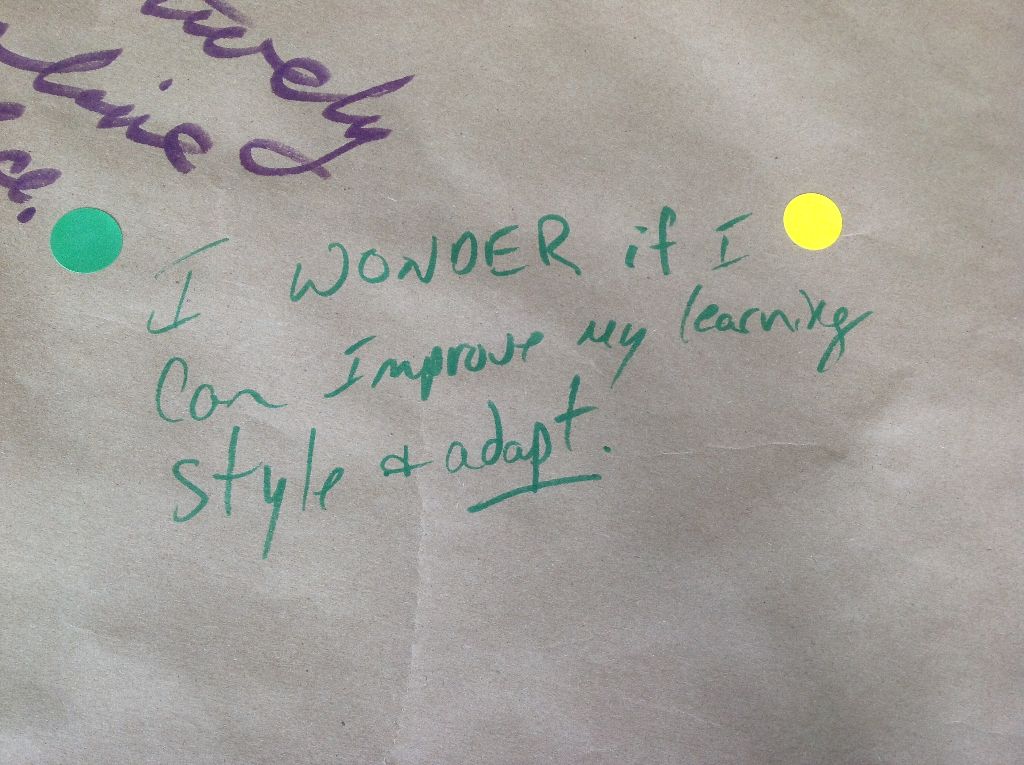 I WONDER if I
Can Improve my learning
style & adapt.